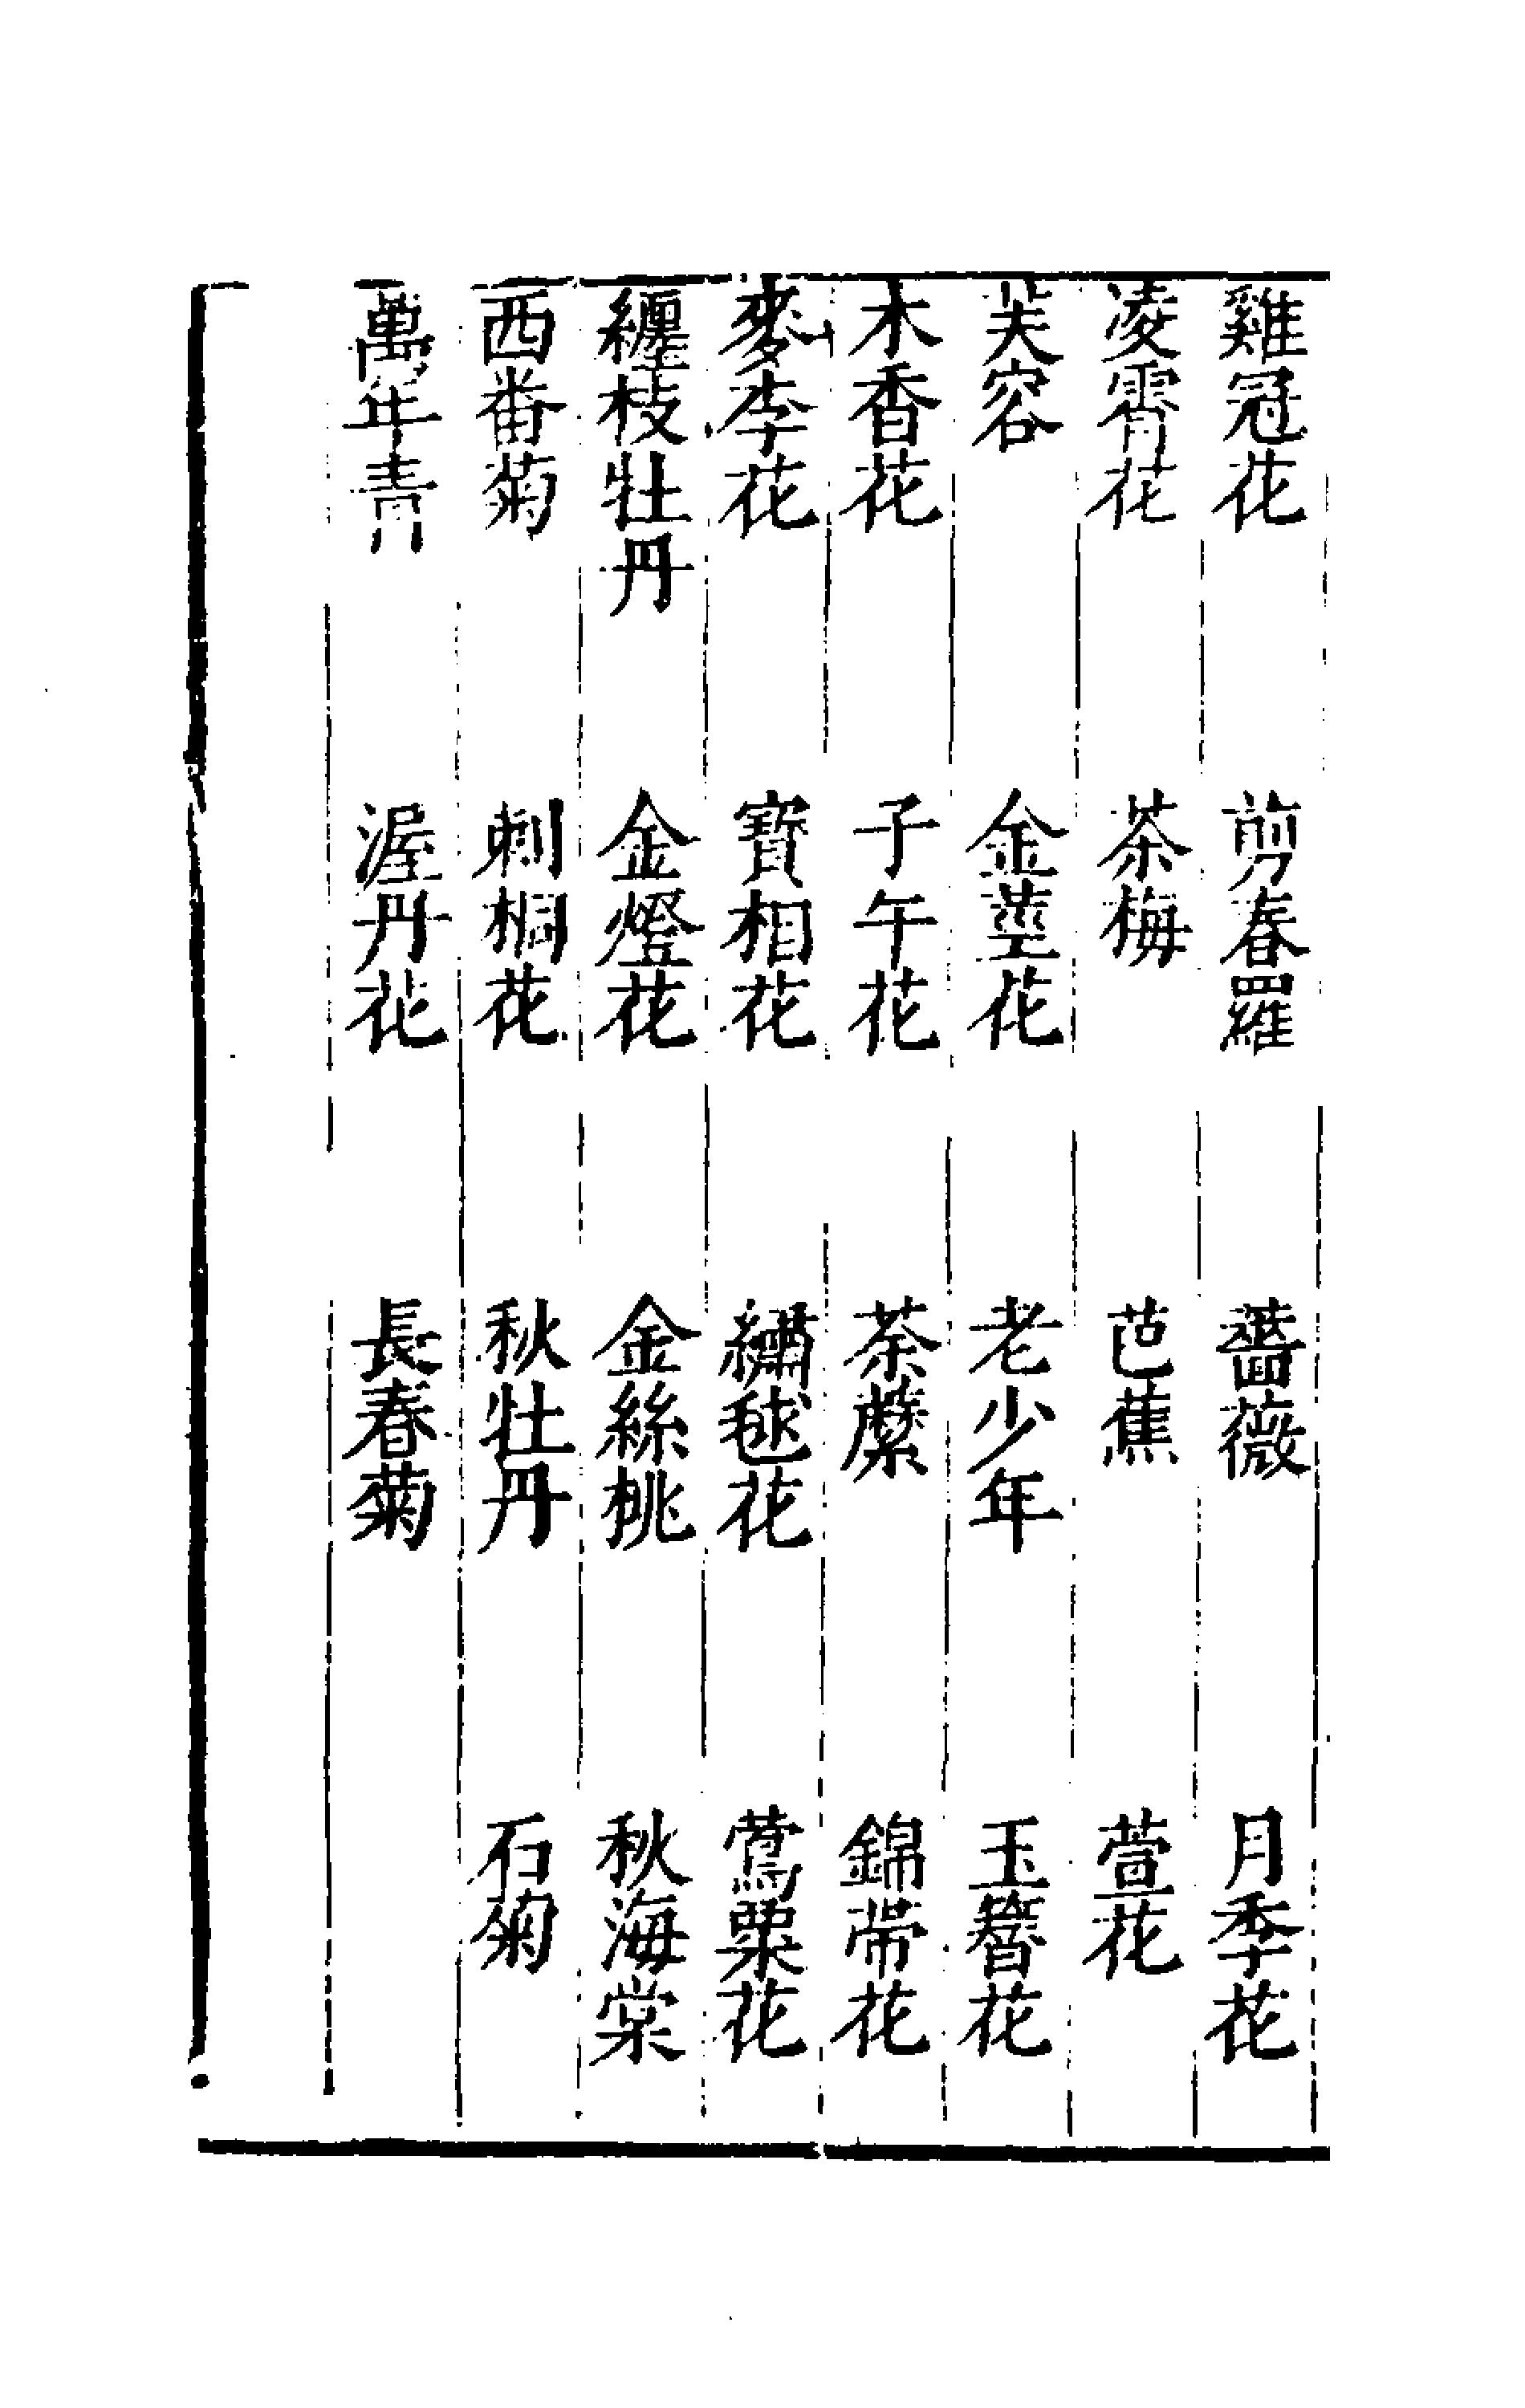 雞冠花 剪春羅 薔薇 月季花
凌霄花 茶梅 芭蕉 萱花
芙容 金莖花 老少年 玉簪花
木香花 子午花 荼蘼 錦帶花
麥李花 寶相花 繡毬花 鶯粟花
纏枝牡丹 金燈花 金絲桃 秋海棠
西番菊 刺桐花 秋牡丹 石菊
萬年青 渥丹花 長春菊